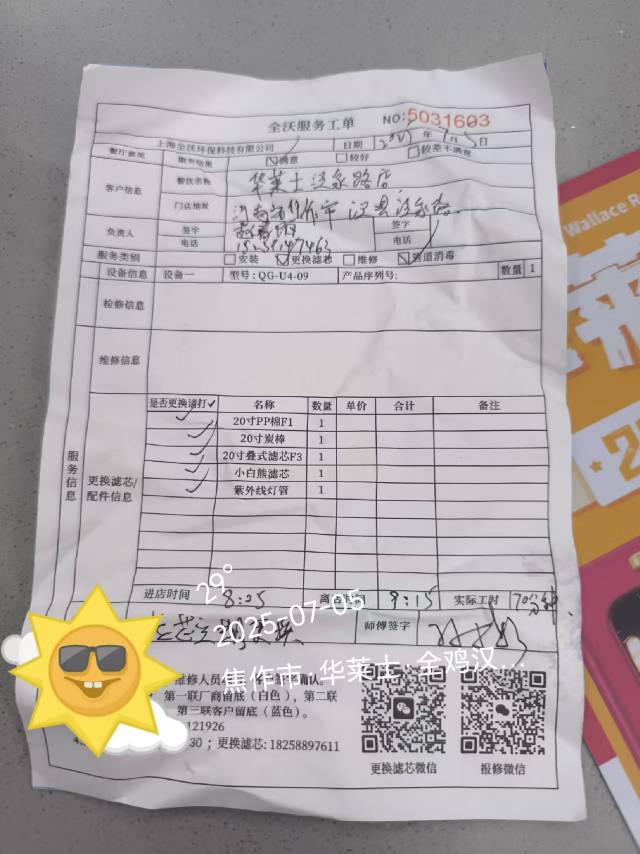 全沃服务工单 NO:5031603
上海全沃环保科技有限公司 日期 2025年7月5日
餐厅意见 服务结果 满意 较好 较差不满意
客户信息 餐饮名称 华莱士
门店地址 河南省焦作市
负责人 签字 签字
电话 电话
服务类别 安装 更换滤芯 维修 管道消毒
设备信息 设备一 型号: QG-U4-09 产品序列号: 数量 1
检修信息
维修信息
服务信息
更换滤芯/配件信息
是否更换请打✓ 名称 数量 单价 合计 备注
✓ 20寸PP棉F1 1
✓ 20寸炭棒 1
✓ 20寸叠式滤芯F3 1
✓ 小白熊滤芯 1
✓ 紫外线灯管 1
进店时间 8:25 9:15 实际工时
师傅签字
29°
2025-07-05
焦作市·华莱士·全鸡汉...
维修人员
第一联厂商留底(白色),第二联
第三联客户留底(蓝色)。
121926
30;更换滤芯: 18258897611
更换滤芯微信 报修微信
Wallace